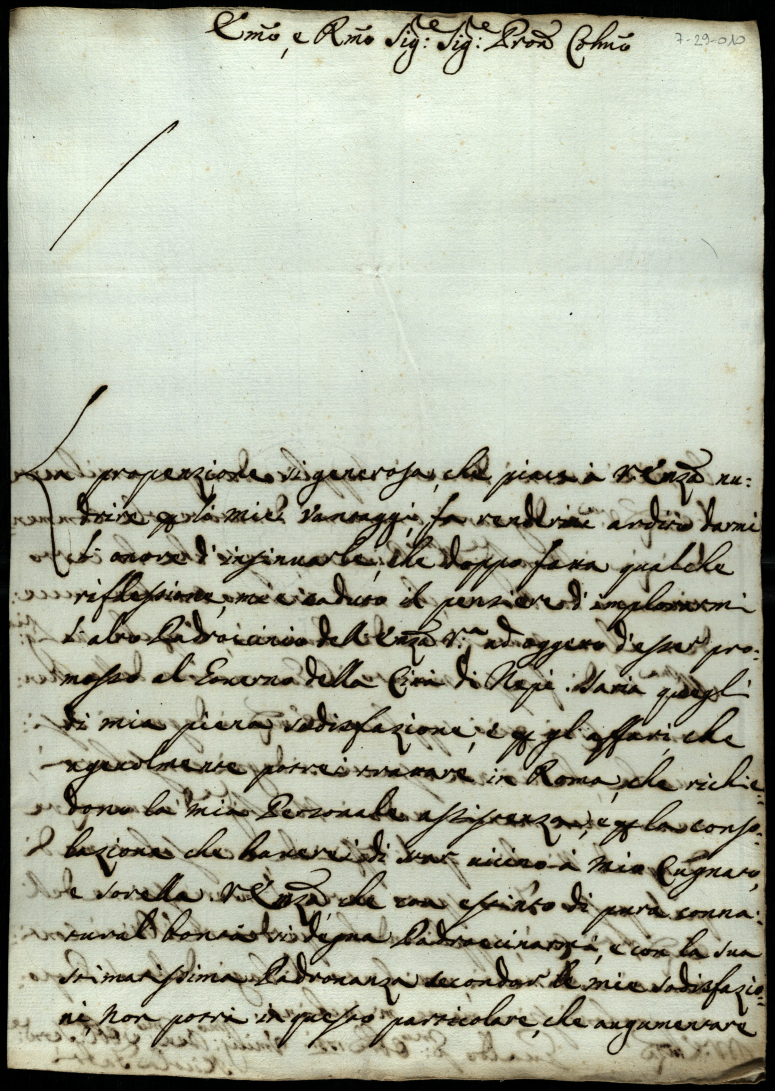 Em̃o, e Rm̃o Sig:re Sig:re Pron̄ Colm̃o
7-29-010
La propenzione si generosa, che piace à V. Enza nu:
drire p li miei vantaggi, fa rendermi ardito darmi
l'onore d'insinuarle, che doppo fatta qualche
riflessione, mi è caduto il pensiere d'implorarmi
l'alto Padrocinio dell'Enza V.ra ad oggetto d'esser pro:
mosso al Governo della Città di Nepi. Saria quegli
di mia piena sodisfazione, e p gl'affari che
agevolmente potrei trattare in Roma, che richie:
dono la mia Personale assistenza, e p la conso:
lazione che haverei di star vicino à mio Cugnato,
e sorella. V. Enza che con istinto di pura conna:
tural bontà si degna Padrocinarmi, e con la sua
stimatissima Padronanza secondar le mie sodisfazio:
ni, non potrà in questo particolare, che augumentare